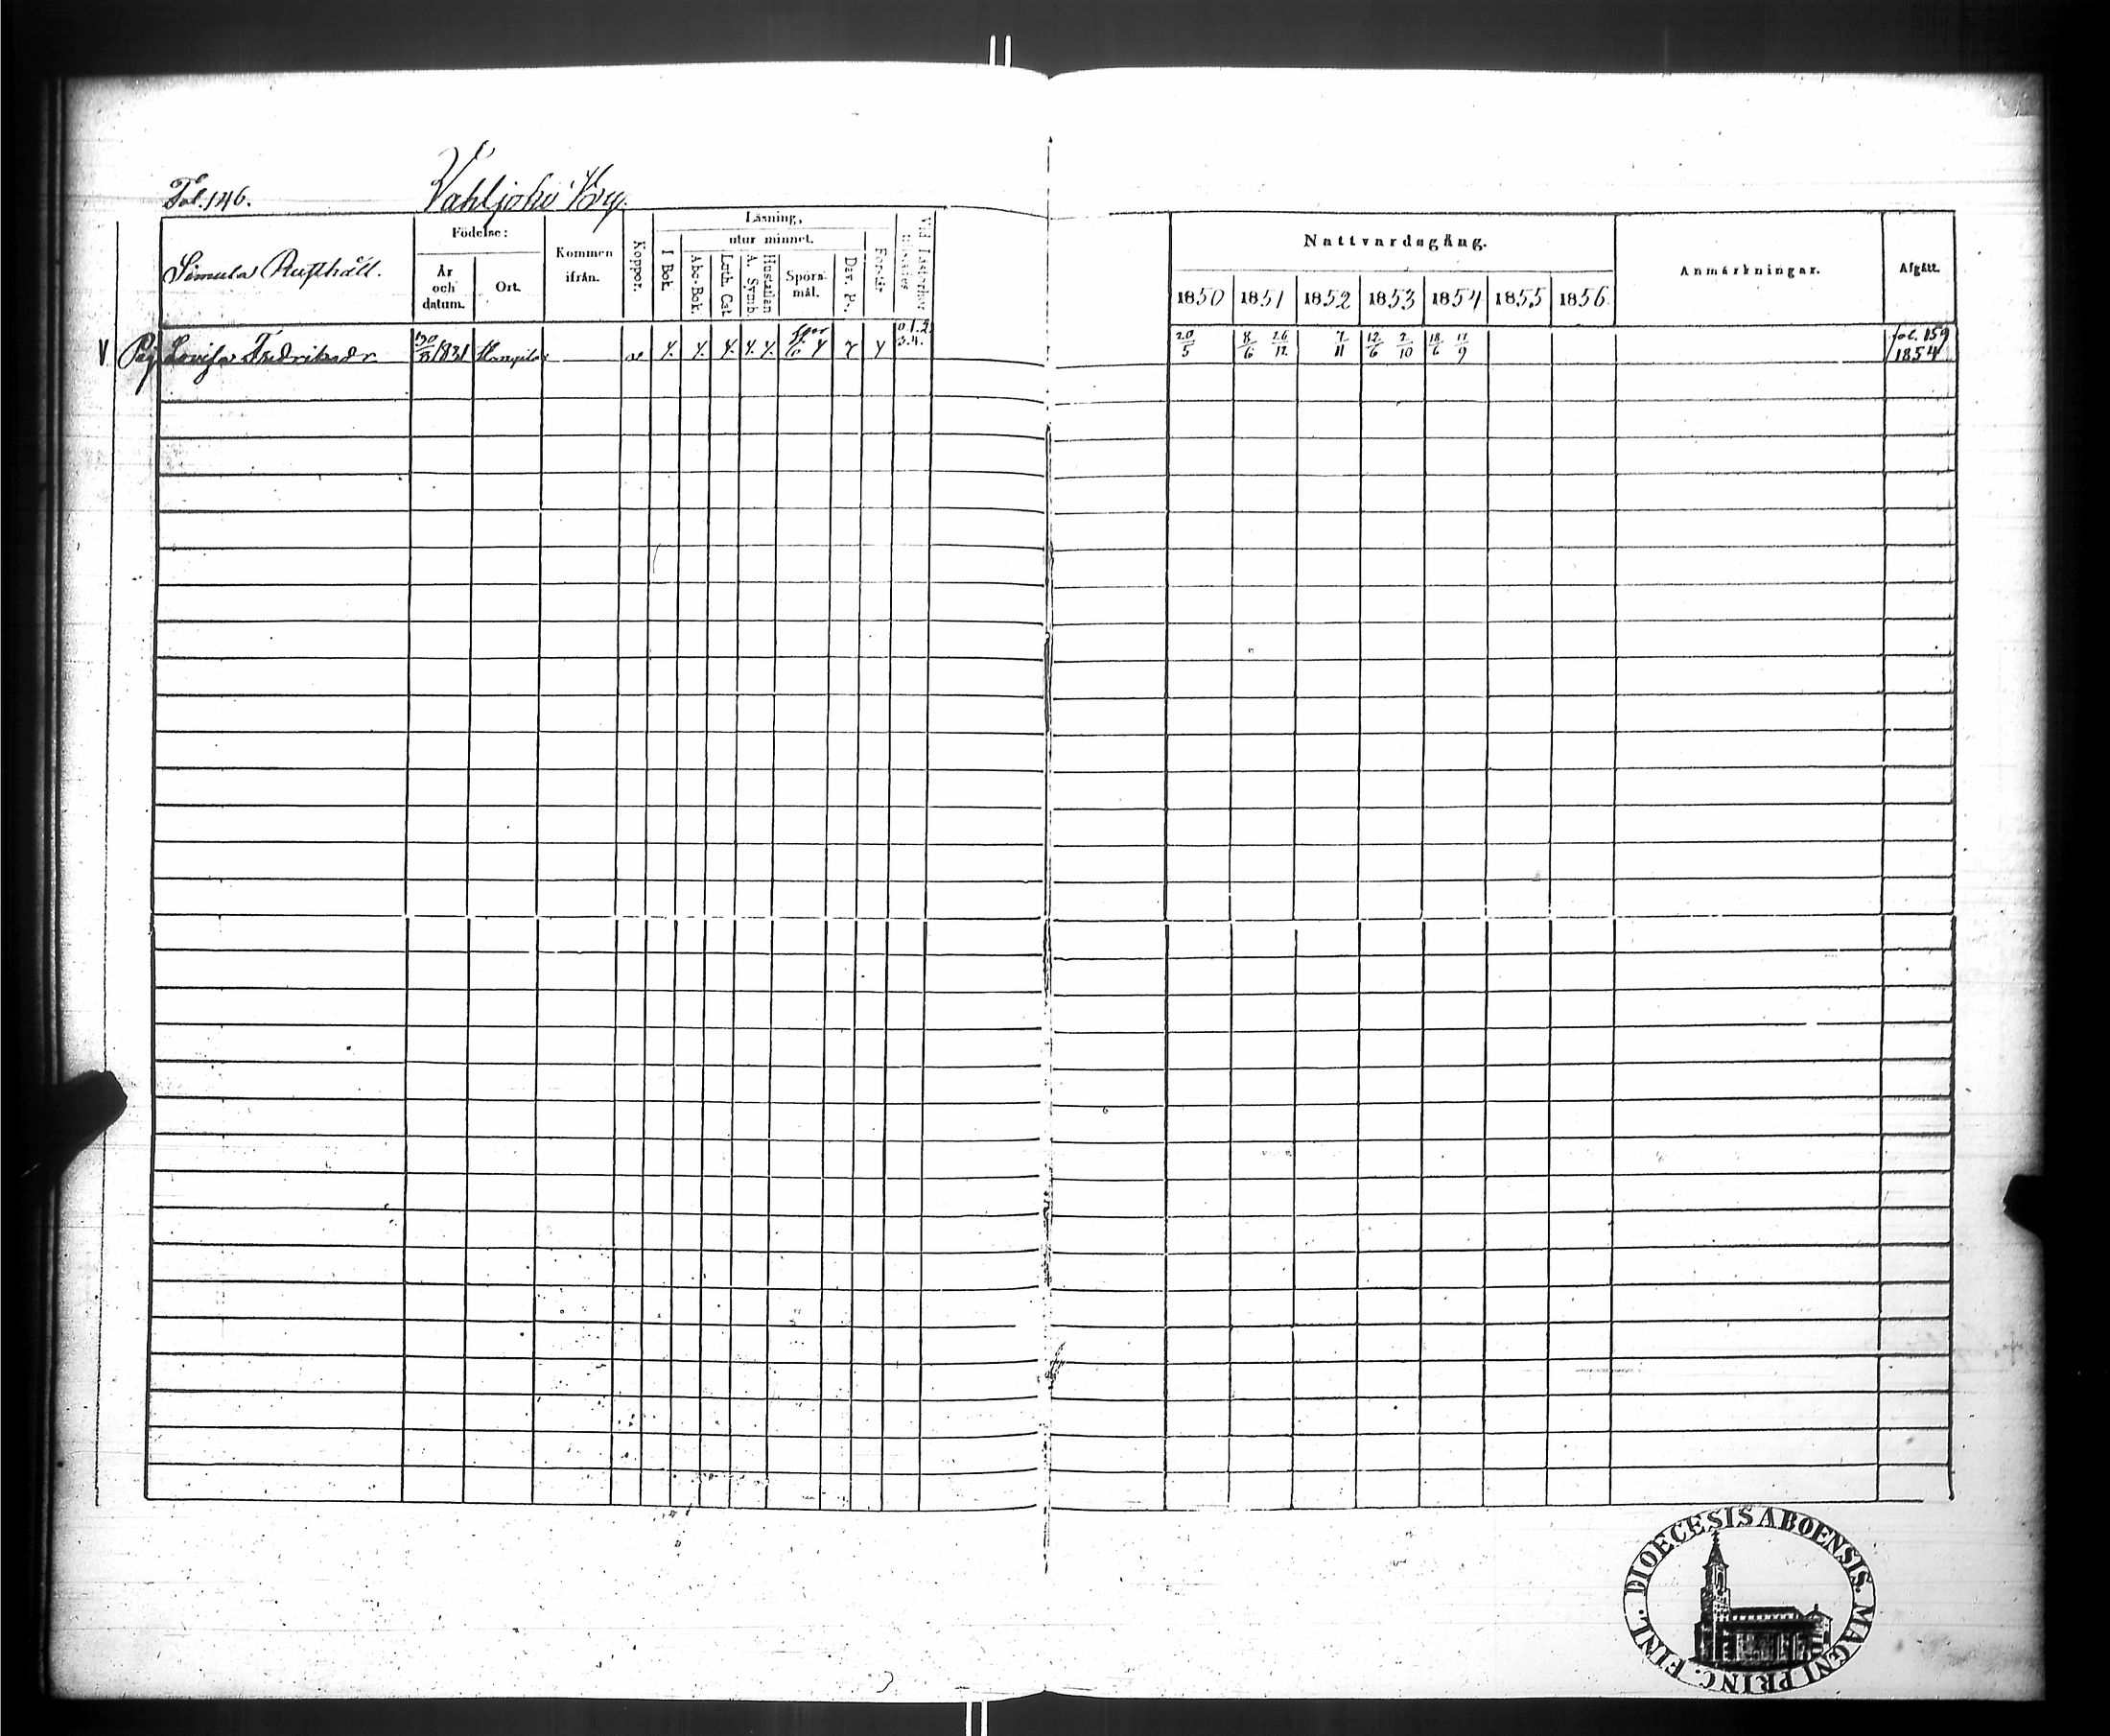 Fol. 146.
Vahljoki By.
Simula Rusthåll.
Födelse:
År
och
datum.
Ort.
Kommen
ifrån.
Koppor.
Läsning,
utur minnet.
I Bok.
Abc-Bok.
Luth. Cat
A. Symb.
Hustaflan
Spörs-
mål.
Dav. Ps.
Förstår
Nattvardsgång.
1850 1851 1852 1853 1854 1855 1856
Anmärkningar.
Afgått.
V Pig Lovisa Fredriksdr 1831
0.1.2.
3.4.
20/5 8/6 26/12 7/11 12/6 2/10 18/6 17/9
fol. 159
1854
DIOECESIS ABOENSIS. MAGNI PRINC. FINL.